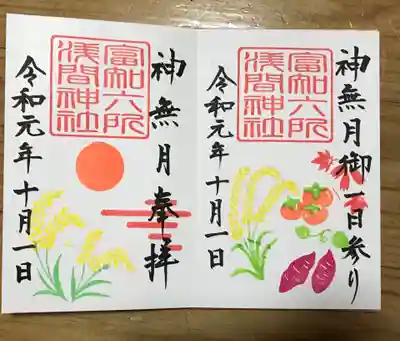 神無月御一日参り
富知六所
浅間神社
令和元年十月一日
神無月奉拝
富知六所
浅間神社
令和元年十月一日